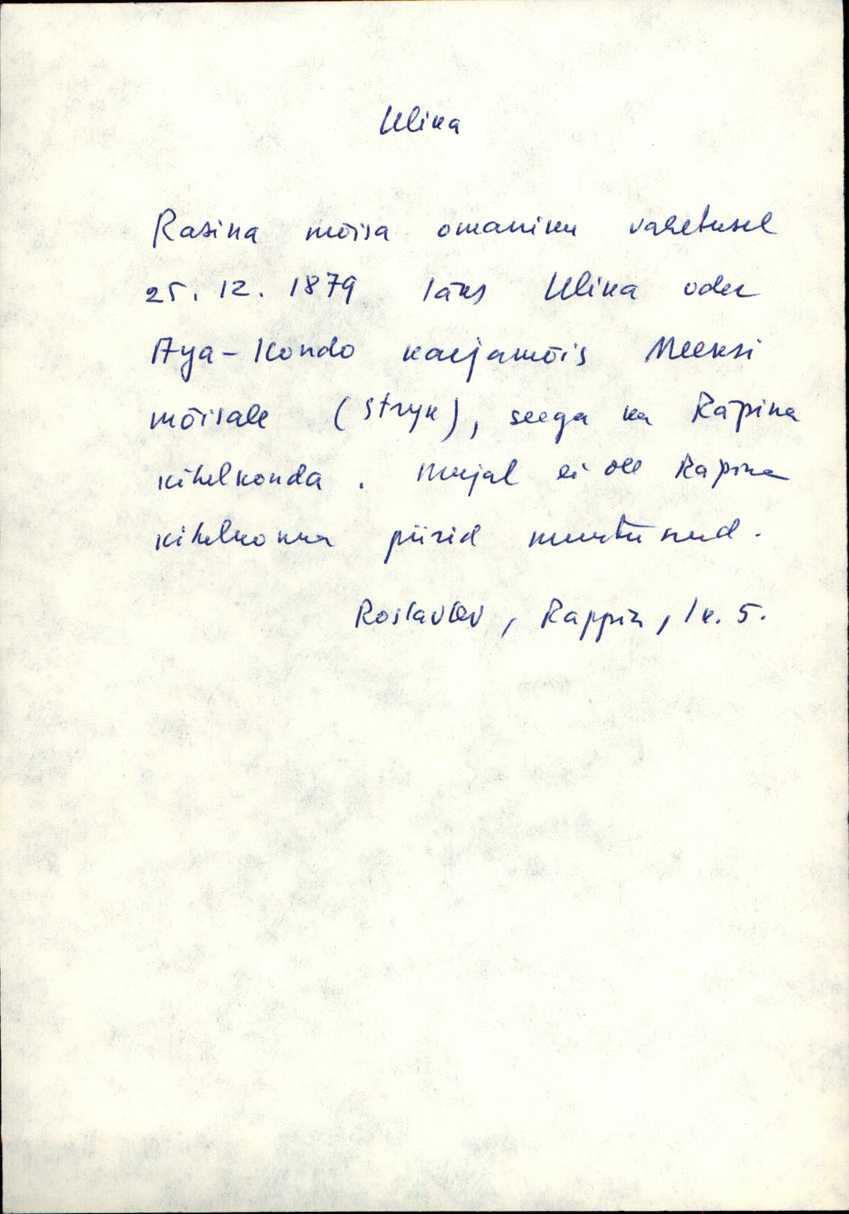 Ulika
Rasina mõisa omaniku vahetusel
25. 12. 1879 läks Ulika oder
Aya-Kondo karjamõis Meeksi
mõisale (Stryk), seega ka Räpina
kihelkonda. Mujal ei ole Räpina
kihelkonna piirid muutunud.
Roslavlev, Rappin, lk. 5.